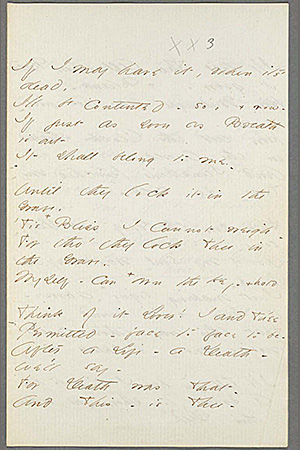 X X 3
If I may have it, when it's
dead,
I'll be Contented - so, + now -
If just as soon as Breath
is out
It shall belong to me -
Until they lock it in the
Grave,
'Tis + Bliss I Cannot weigh -
For tho' they lock Thee in
the Grave,
Myself - Can + own the key - + hold
Think of it Lover! I and Thee
+ Permitted - face to face to be -
After a Life - a Death -
we'll say -
For Death was That -
And This - is Thee -